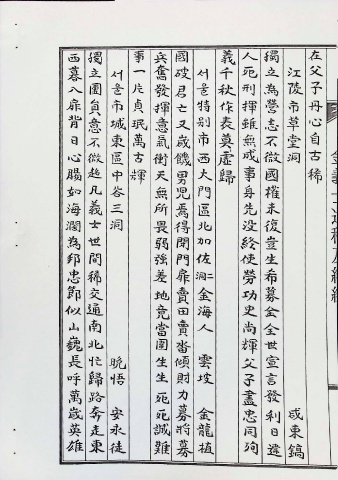 在父子丹心自古稀
江陵市草堂洞 咸東鎬
獨立為營志不微國權未復豈生希募金全世宣言發利日遺
人死刑揮雖無成事身先没終使勞功史尚輝父子盡忠同殉
義千秋作表莫虛歸
서울特別市西大門區北加佐洞二 金海人 雲坡 金龍植
國破君亡又歲饑男兒焉得閉門扉賣田賣畓傾財力募將募
兵奮發揮意氣衝天無所畏弱強差地竟當圍生生死死誠難
事一片貞珉萬古輝
서울市城東區中谷三洞 晩悟 安永徒
獨立團員意不微超凡義士世間稀交通南北忙歸路奔走東
西暮八扉背日心腸如海濶為邦忠節似山巍長呼萬歲英雄